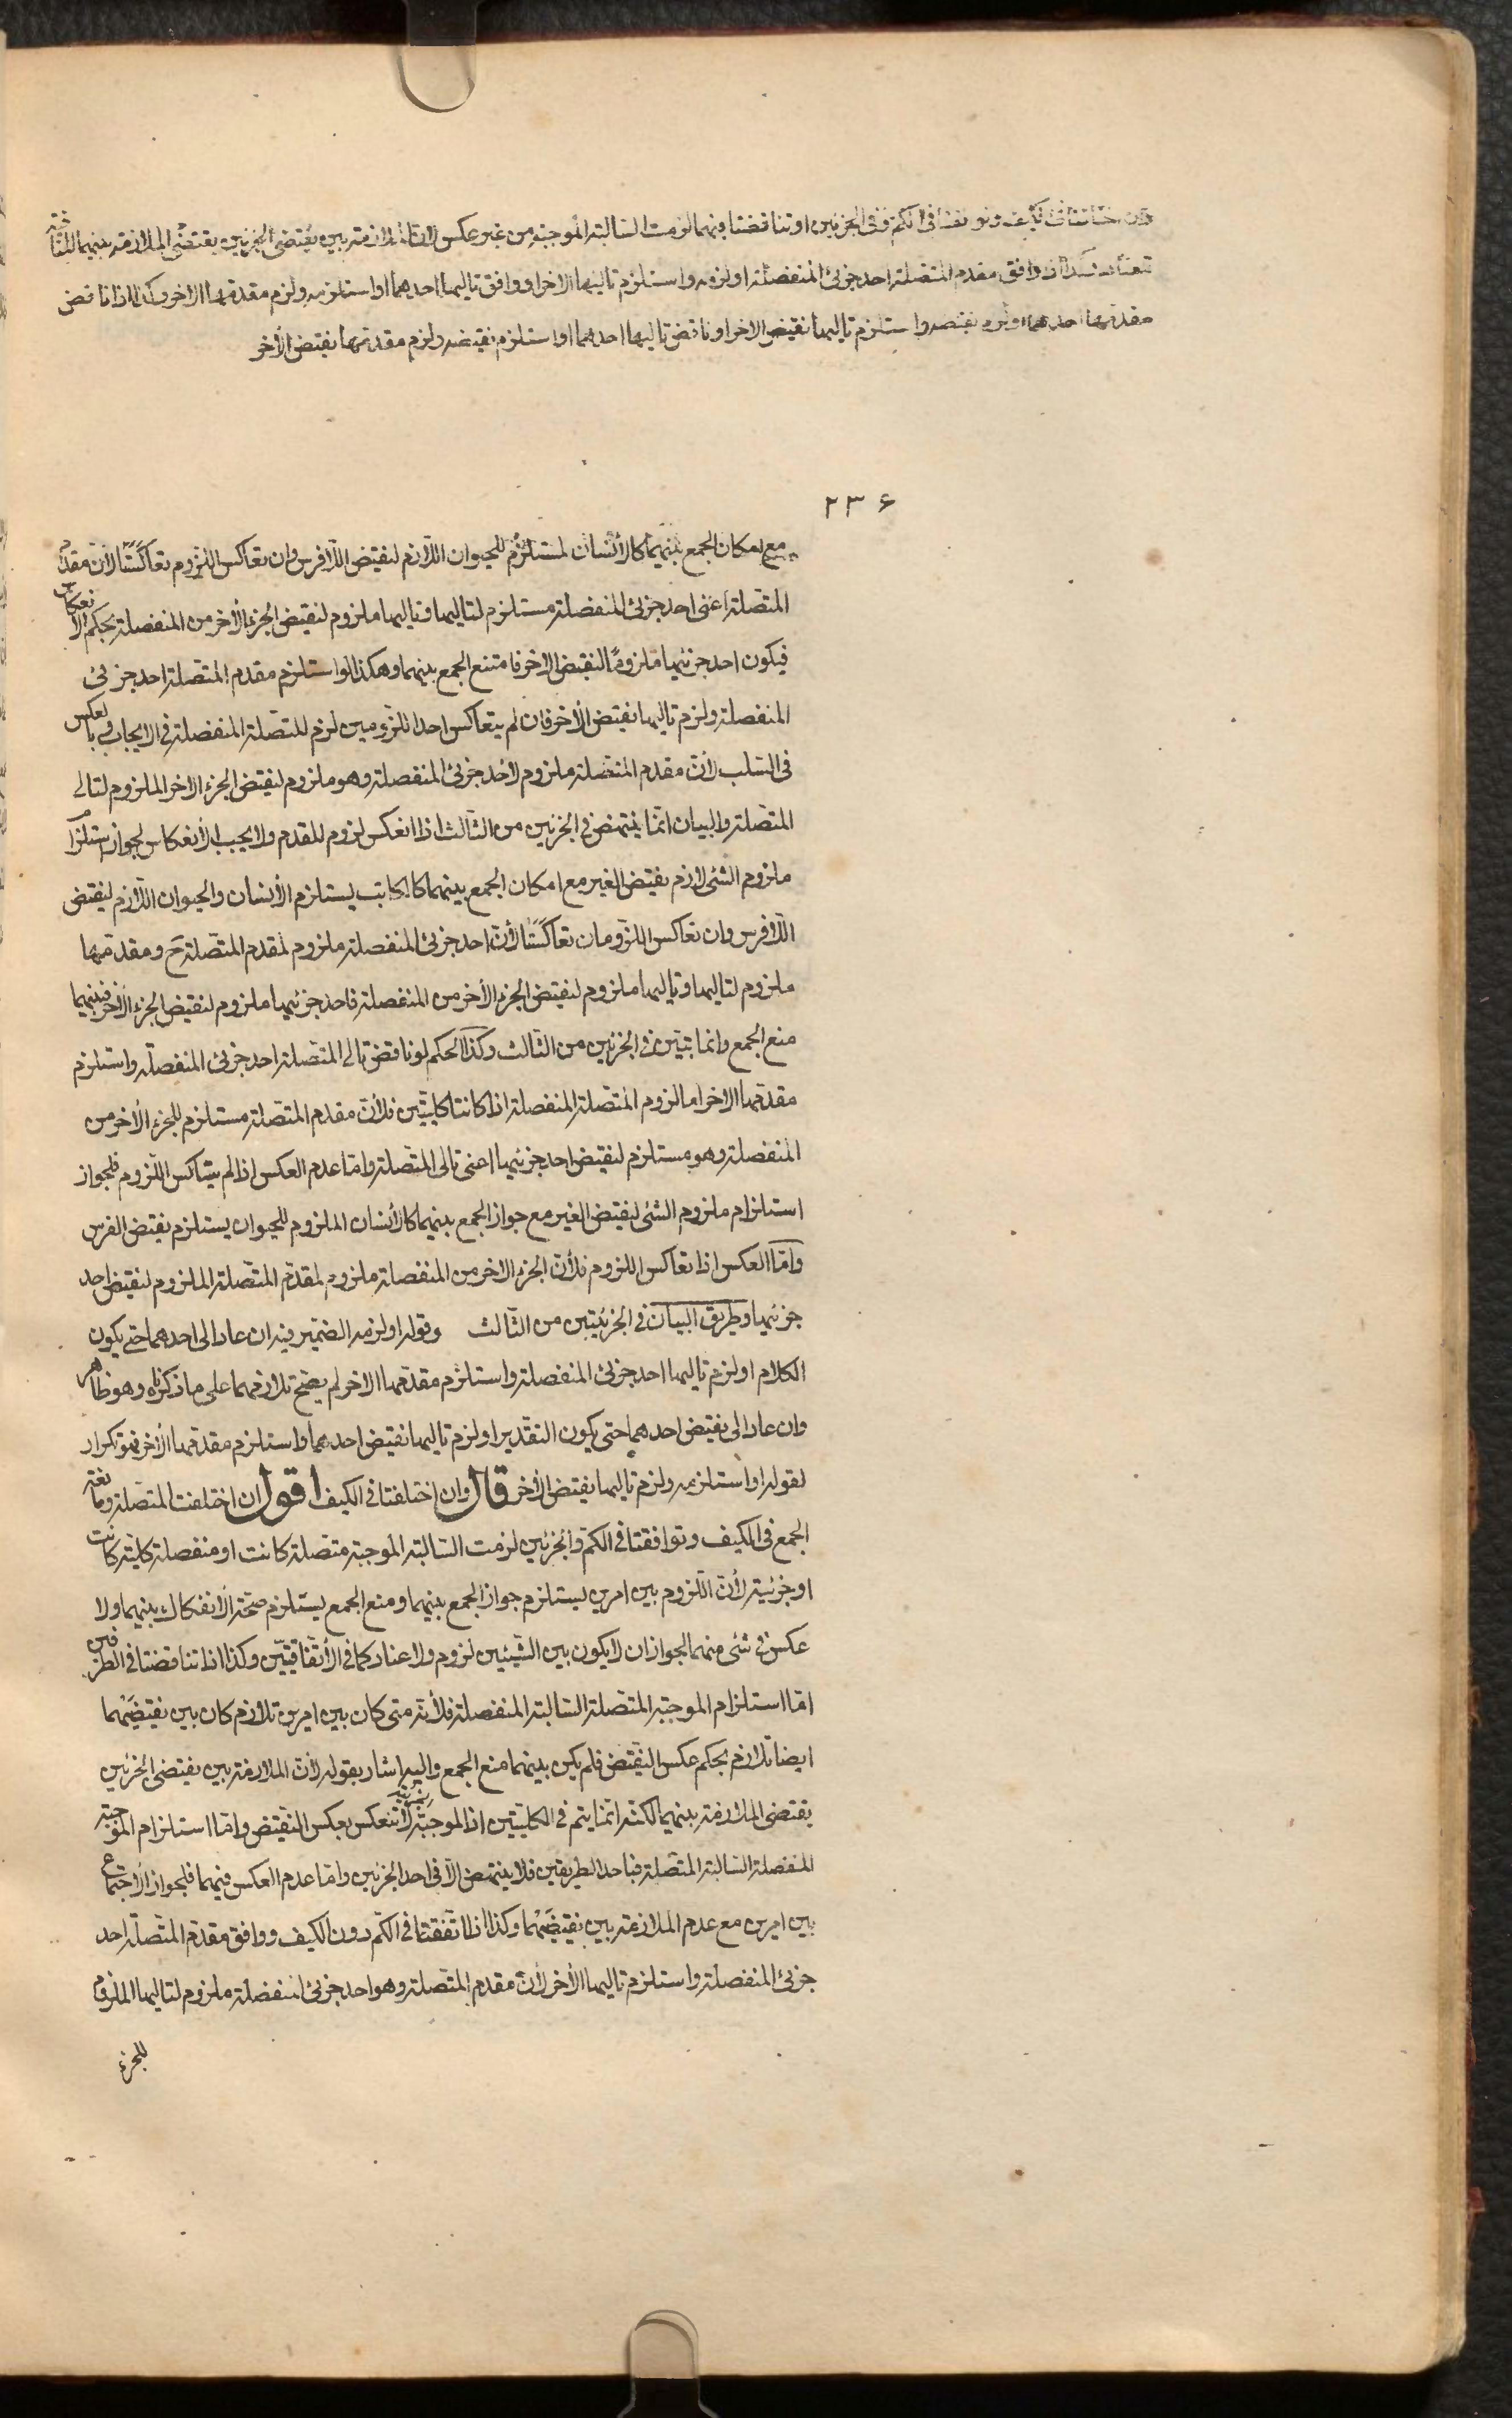 وان اختلفتا فى الكيف وتوافقتا فى الكم وفى الجزئين او تناقضتا فيهما لزمت السالبة الموجبة من غير عكس لان الملازمة بين نقيضى الجزئين يقتضى الملازمة بينهما
وافق مقدم المتصلة احد جزئى المنفصلة او لزمه واستلزم تاليها الاخر او وافق تاليها احدهما او استلزمه ولزم مقدمها الاخر وكذا اذا ناقض
مقدمها احدهما او لزم نقيضه واستلزم تاليها نقيض الاخر او ناقض تاليها احدهما او استلزم نقيضه ولزم مقدمها نقيض الأخر
۲۳۶
مع امكان الجمع بينهما كالأنسان المستلزم للحيوان اللازم لنقيض اللافرس وان تعاكس اللزوم تعاكستا لان مقدم
المتصلة اعنى احد جزئى المنفصلة مستلزم لتاليها وتاليها ملزوم لنقيض الجزء الأخر من المنفصلة بحكم الانعكاس
فيكون احد جزئيها ملزومًا لنقيض الاخر فامتنع الجمع بينهما وهكذا لو استلزم مقدم المتصلة احد جزئى
المنفصلة ولزم تاليها نقيض الأخر فان لم يتعاكس احد اللزومين لزم للتصلة المنفصلة فى الايجاب وبالعكس
فى السلب لان مقدم المتصلة ملزوم لأحد جزئى المنفصلة وهو ملزوم لنقيض الجزء الاخر الملزوم لتالى
المتصلة والبيان انما ينتهض فى الجزئين من الثالث اذا انعكس لزوم للقدم ولا يجب الأنعكاس لجواز استلزام
ملزوم الشئ لازم نقيض الغير مع امكان الجمع بينهما كالكاتب يستلزم الأنسان والحيوان اللازم لنقيض
اللافرس وان تعاكس اللزومان تعاكستا لأن احد جزئى المنفصلة ملزوم لمقدم المتصلة ح ومقدمها
ملزوم لتاليها وتاليها ملزوم لنقيض الجزء الأخر من المنفصلة فاحد جزئيها ملزوم لنقيض الجزء الأخر فبينهما
منع الجمع وانما يتبين فى الجزئين من الثالث وكذا الحكم لو ناقض تالى المتصلة احد جزئى المنفصلة واستلزم
مقدمها الاخر اما لزوم المتصلة المنفصلة اذا كانتا كليتين فلأن مقدم المتصلة مستلزم للجزء الأخر من
المنفصلة وهو مستلزم لنقيض احد جزئيها اعنى تالى المتصلة واما عدم العكس اذا لم يتعاكس اللزوم فلجواز
استلزام ملزوم الشئ لنقيض الغير مع جواز الجمع بينهما كالأنسان الملزوم للحيوان يستلزم نقيض الفرس
واما العكس اذا تعاكس اللزوم فلأن الجزء الاخر من المنفصلة ملزوم لمقدم المتصلة الملزوم لنقيض احد
جزئيها وطريق البيان فى الجزئيتين من الثالث وقوله او لزمه الضمير فيه ان عاد الى احدهما حتى يكون
الكلام او لزم تاليها احد جزئى المنفصلة واستلزم مقدمها الاخر لم يصح تلازمهما على ما ذكرناه وهو ظاهر
وان عاد الى نقيض احدهما حتى يكون التقدير او لزم تاليها نقيض احدهما واستلزم مقدمها الأخر فهو تكرار
لقوله او استلزمه ولزم تاليها نقيض الأخر قال وان اختلفتا فى الكيف اقول ان اختلفت المتصلة ومانعة
الجمع فى الكيف وتوافقتا فى الكم والجزئين لزمت السالبة الموجبة متصلة كانت او منفصلة كلية كانت
او جزئية لأن اللزوم بين امرين يستلزم جواز الجمع بينهما ومنع الجمع يستلزم صحة الأنفكاك بينهما ولا
عكس فى شئ منهما لجواز ان لا يكون بين الشيئين لزوم ولا عناد كما فى الأتفاقيتين وكذا اذا تناقضتا فى الطرفين
اما استلزام الموجبة المتصلة السالبة المنفصلة فلأنه متى كان بين امرين تلازم كان بين نقيضيهما
ايضا تلازم بحكم عكس النقيض فلم يكن بينهما منع الجمع واليه اشار بقوله لأن الملازمة بين نقيضى الجزئين
يقتضى الملازمة بينهما لكنه انما يتم فى الكليتين اذ الموجبة الجزئية لا تنعكس بعكس النقيض واما استلزام الموجبة
المنفصلة السالبة المتصلة فباحد الطريقين فلا ينتهض الا فى احد الجزئين واما عدم العكس فيهما فلجواز الأجتماع
بين امرين مع عدم الملازمة بين نقيضيهما وكذا اذا اتفقتا فى الكم دون الكيف ووافق مقدم المتصلة احد
جزئى المنفصلة واستلزم تاليها الأخر لأن مقدم المتصلة وهو احد جزئى المنفصلة ملزوم لتاليها الملزوم
للجزء